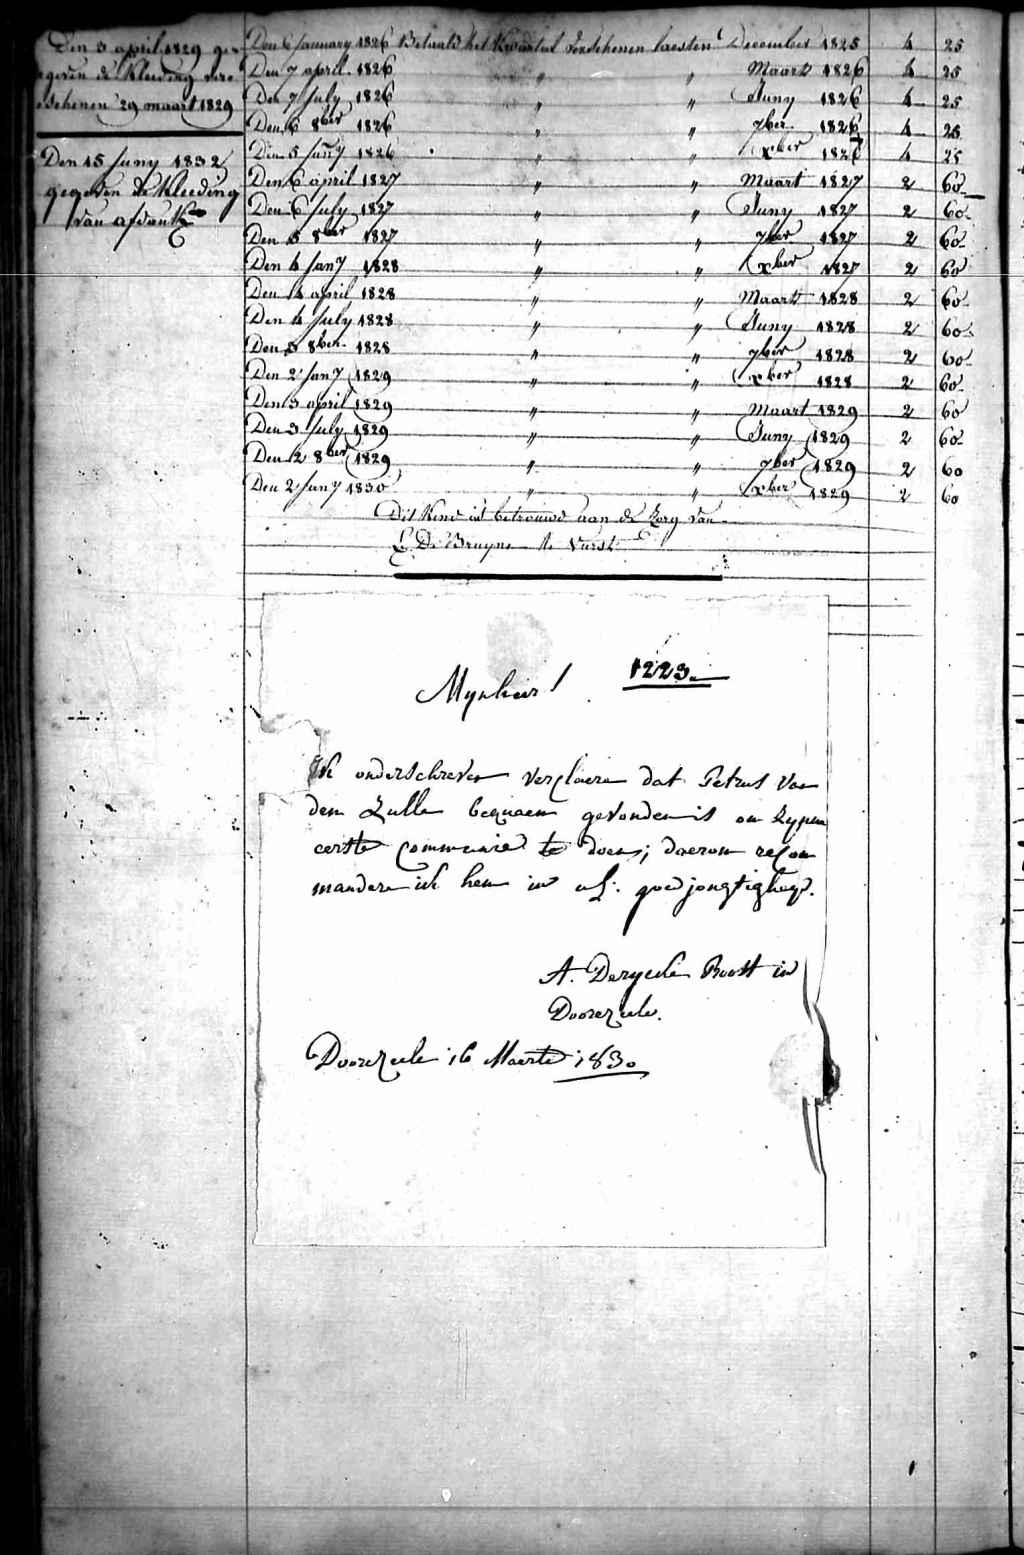 Den 3 april 1829 ge-
geven de Kleeding vers-
schenen 29 maart 1829
Den 15 Juny 1832
gegeven de Kleeding
van afdank
Den 6 January 1826 Betaald het Kwartael verschenen laesten December 1825 4 25
Den 7 april 1826 " " Maart 1826 4 25
Den 7 July 1826 " " Juny 1826 4 25
Den 6 8ber 1826 " " 7ber 1826 4 25
Den 5 Jany 1826 " " xber 1826 4 25
Den 6 april 1827 " " Maart 1827 2 60
Den 6 July 1827 " " Juny 1827 2 60
Den 5 8ber 1827 " " 7ber 1827 2 60
Den 4 Jany 1828 " " xber 1827 2 60
Den 4 april 1828 " " Maart 1828 2 60
Den 4 July 1828 " " Juny 1828 2 60
Den 3 8ber 1828 " " 7ber 1828 2 60
Den 2 Jany 1829 " " xber 1828 2 60
Den 3 april 1829 " " Maart 1829 2 60
Den 3 July 1829 " " Juny 1829 2 60
Den 2 8ber 1829 " " 7ber 1829 2 60
Den 2 Jany 1830 " " xber 1829 2 60
Dit Kind is betrouwd aan de Zorg van
L. De Bruyne te Vurst
1223.
Mynheer!
Ik onderschreven verclaere dat Petrus Van
den Zulle bequaem gevonden is om zynen
eerste communie te doen; daerom recom
mandere ik hem in uL. goedjongtigheyd.
A. Derycke Pastr in
Doorezeele.
Doorezeele 16 Maerte 1830